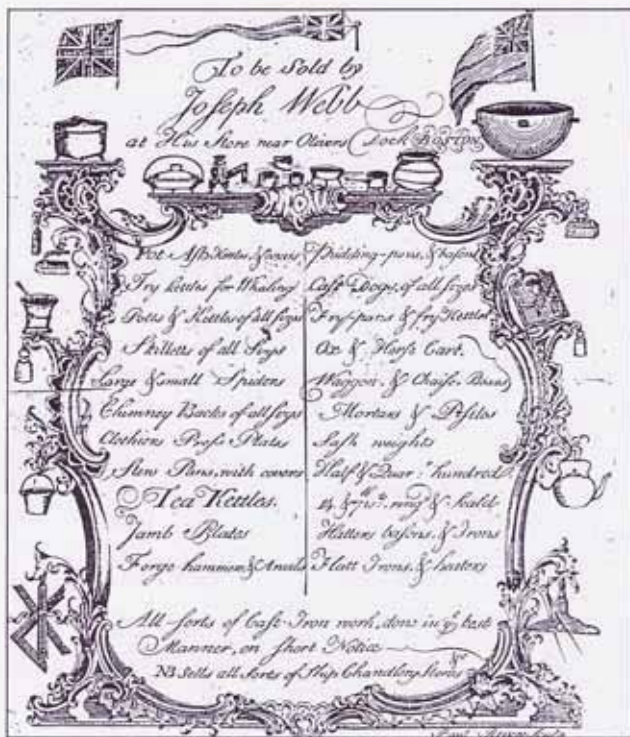 To be Sold by
Joseph Webb
at His Store near Olivers Dock Boston
Pot Ash Kettles, & covers
Try kettles for Whaling
Potts & Kettles of all sizes
Skilletts of all Sizes
Large & small Spiders
Chimney Backs of all sizes
Clothiers Press Plates
Stew Pans, with covers
Tea Kettles.
Jamb Plates
Forge hammers & Anvils
Pudding-pans, & basons
Cast Dogs, of all sizes
Fry-pans & fry Kettles
Ox & Horse Cart.
Waggon, & Chaise. Boxes
Mortars & Pestles
Sash weights
Half & Quar.r hundred
14 & 7 ring'd &
Hatters basons, & Irons
Flatt Irons, & heaters
All sorts of Cast-Iron work, done in ye. best
Manner, on short Notice
NB Sells all sorts of Ship Chandlery Stores &c
Paul Revere Sculp